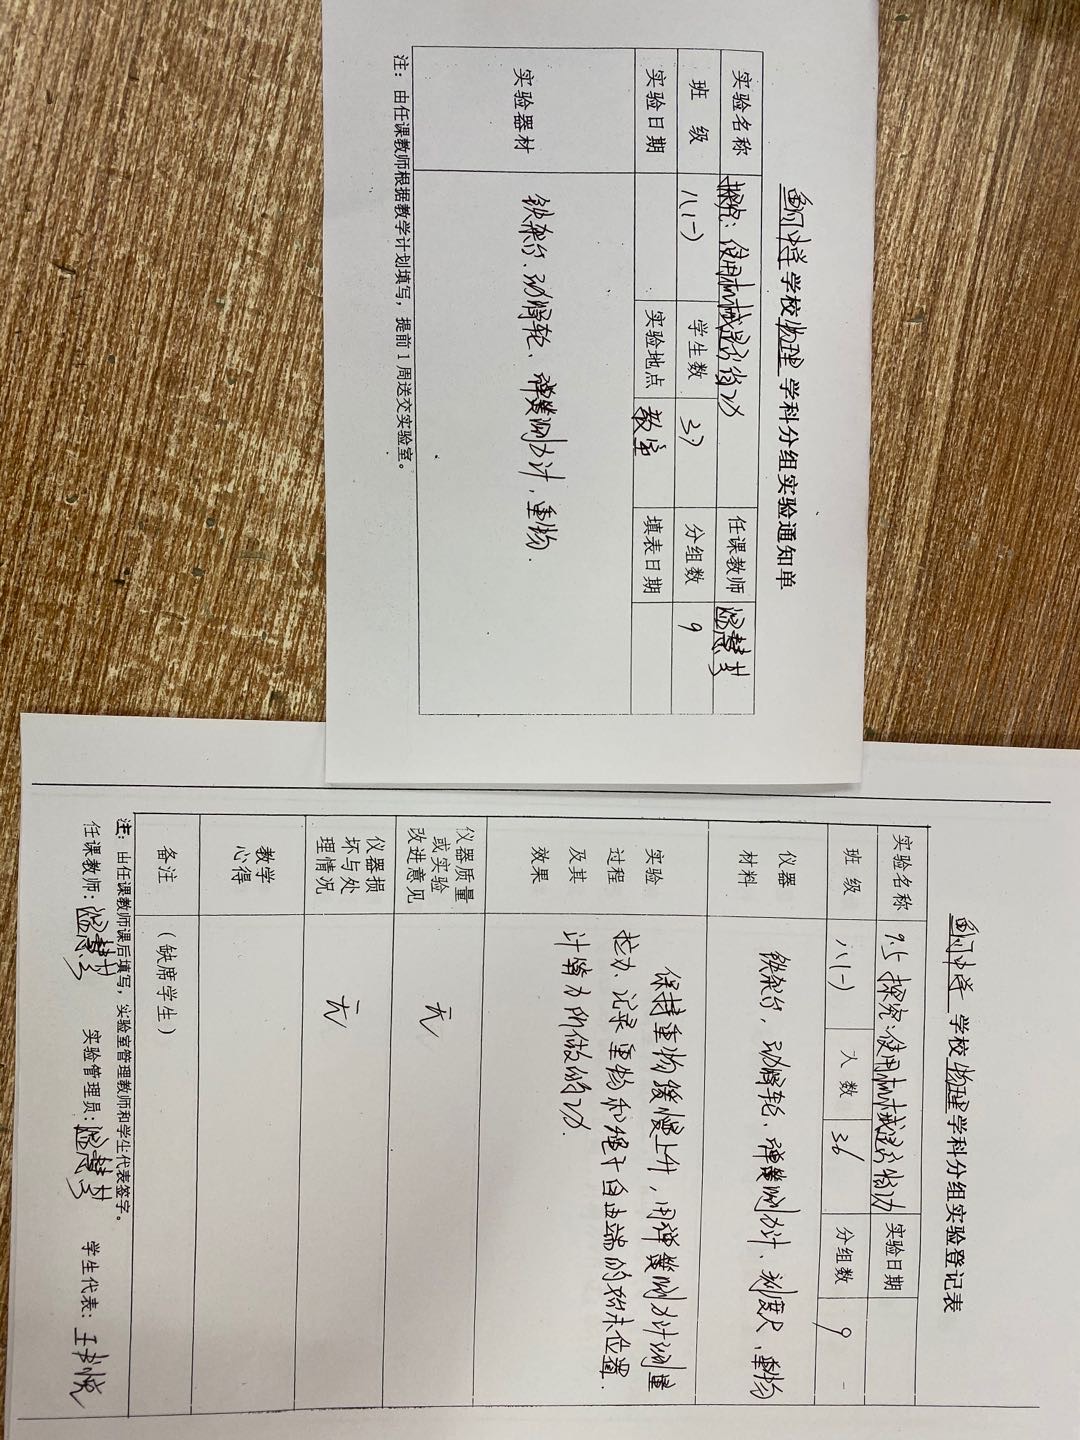 中学学校物理学科分组实验通知单
实验名称 探究:使用机械是否省功 任课教师
班 级 八(一) 学生数 37 分组数 9
实验日期 实验地点 教室 填表日期
实验器材 铁架台、动滑轮、弹簧测力计、重物.
注:由任课教师根据教学计划填写,提前1周送交实验室。
中学学校物理学科分组实验登记表
实验名称 9.5 探究:使用机械是否省功 实验日期
班 级 八(一) 人 数 36 分组数 9
仪器
材料
铁架台、动滑轮、弹簧测力计、刻度尺、重物
实验
过程
及其
效果
保持重物缓慢上升,用弹簧测力计测量
拉力、记录重物和绳子自由端的始末位置.
计算力所做的功.
仪器质量
或实验
改进意见
无
仪器损
坏与处
理情况
无
教学
心得
备注 (缺席学生)
注:由任课教师课后填写,实验室管理教师和学生代表签字。
任课教师: 实验管理员: 学生代表:王